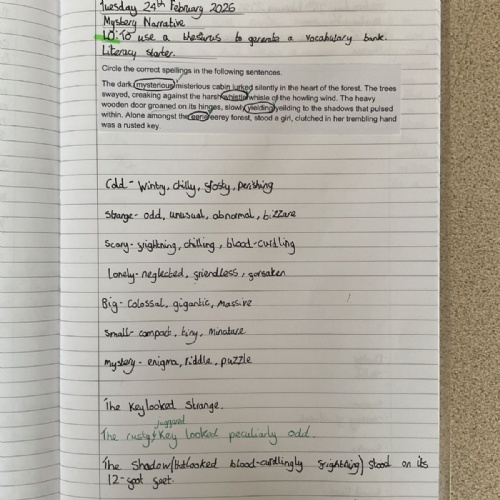 Tuesday 24th February 2026
Mystery Narrative
LO: To use a thesaurus to generate a vocabulary bank.
Literacy starter.
Circle the correct spellings in the following sentences.
The dark, mysterious/misterious cabin lurked silently in the heart of the forest. The trees
swayed, creaking against the harsh whistle/whisle of the howling wind. The heavy
wooden door groaned on its hinges, slowly yielding/yeilding to the shadows that pulsed
within. Alone amongst the eerie/eerey forest, stood a girl, clutched in her trembling hand
was a rusted key.
Cold - wintry, chilly, frosty, perishing
Strange - odd, unusual, abnormal, bizzare
Scary - frightning, chilling, blood-curdling
Lonely - neglected, friendless, forsaken
Big - Colossal, gigantic, massive
Small - compact, tiny, minature
Mystery - enigma, riddle, puzzle
The Key looked Strange.
jaggered
The rusty Key looked peculiarly odd.
The Shadow (that looked blood-curdlingly frightning) stood on its
12-foot feet.